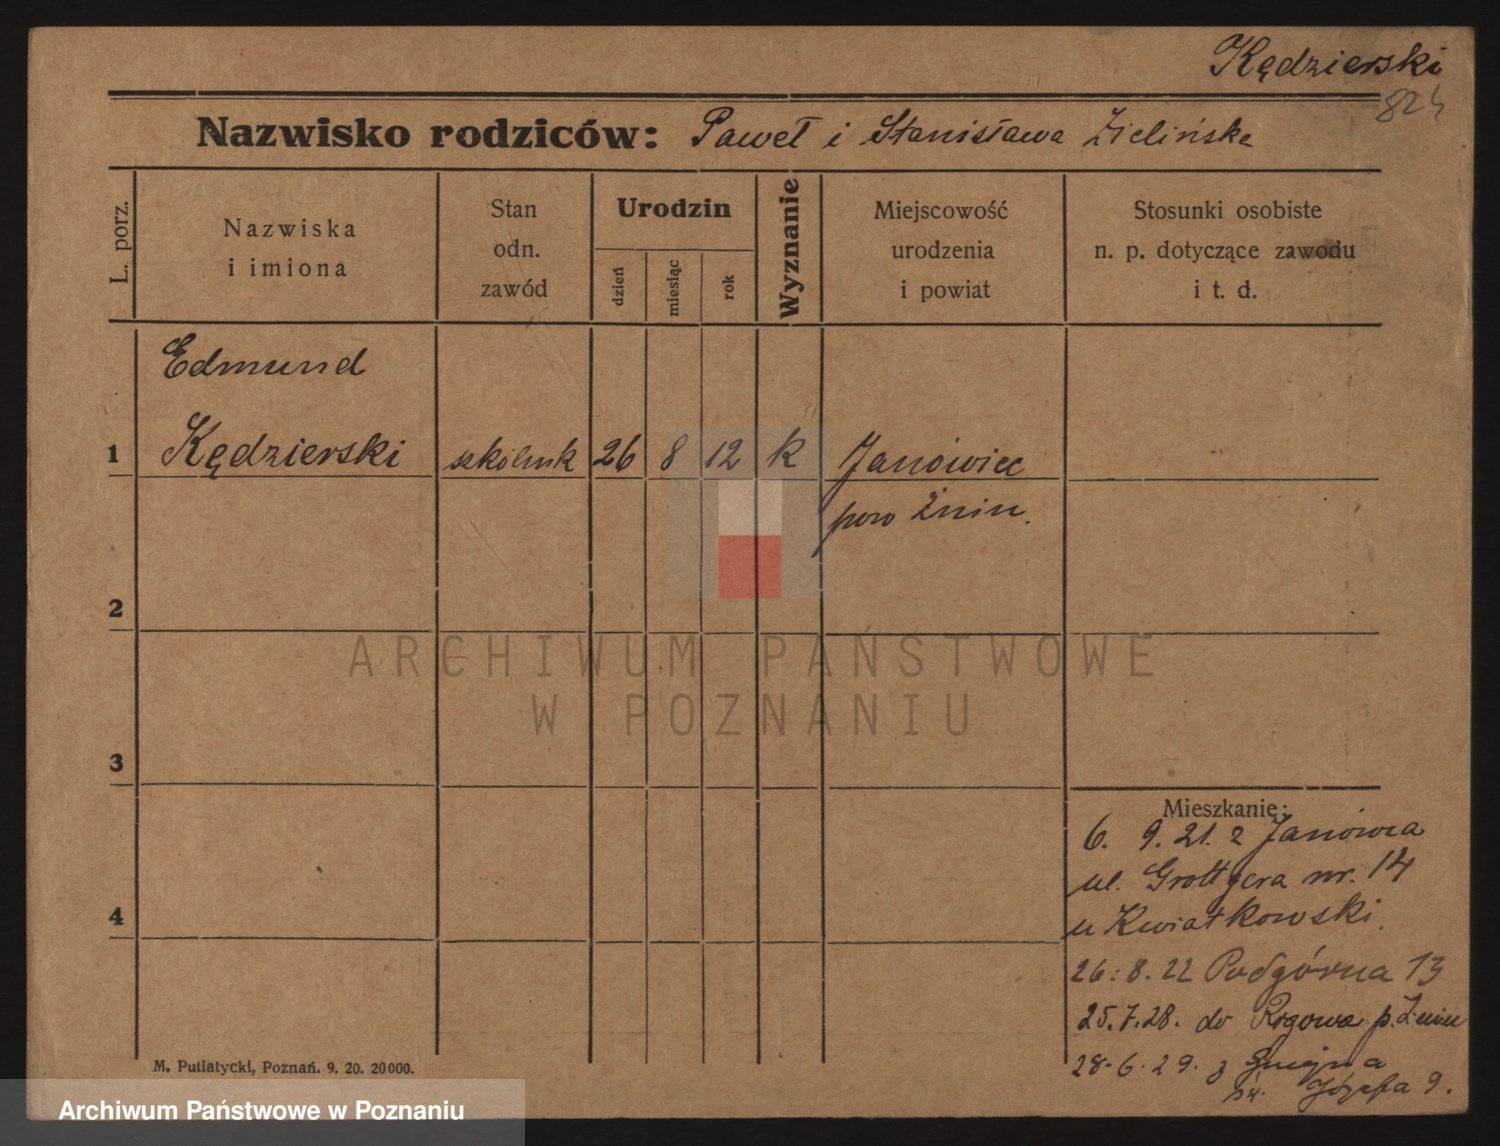 Kędzierski
824
Nazwisko rodziców: Paweł i Stanisława Zielińska
L. porz.
Nazwiska
i imiona
Stan
odn.
zawód
Urodzin
dzień
miesiąc
rok
Wyznanie
Miejscowość
urodzenia
i powiat
Stosunki osobiste
n. p. dotyczące zawodu
i t. d.
Edmund
1 Kędzierski szkólnik 26 8 12 k Janówiec
pow Żnin.
2
ARCHIWUM PAŃSTWOWE
W POZNANIU
3
Mieszkanie:
6. 9. 21. z Janówca
ul. Grottgera nr. 14
4
u Kwiatkowski.
26. 8. 22 Podgórna 13
25. 7. 28. do Rogowa p. Żnin
28. 6. 29. z
św. Józefa 9.
M. Putiatycki, Poznań. 9. 20. 20000.
Archiwum Państwowe w Poznaniu